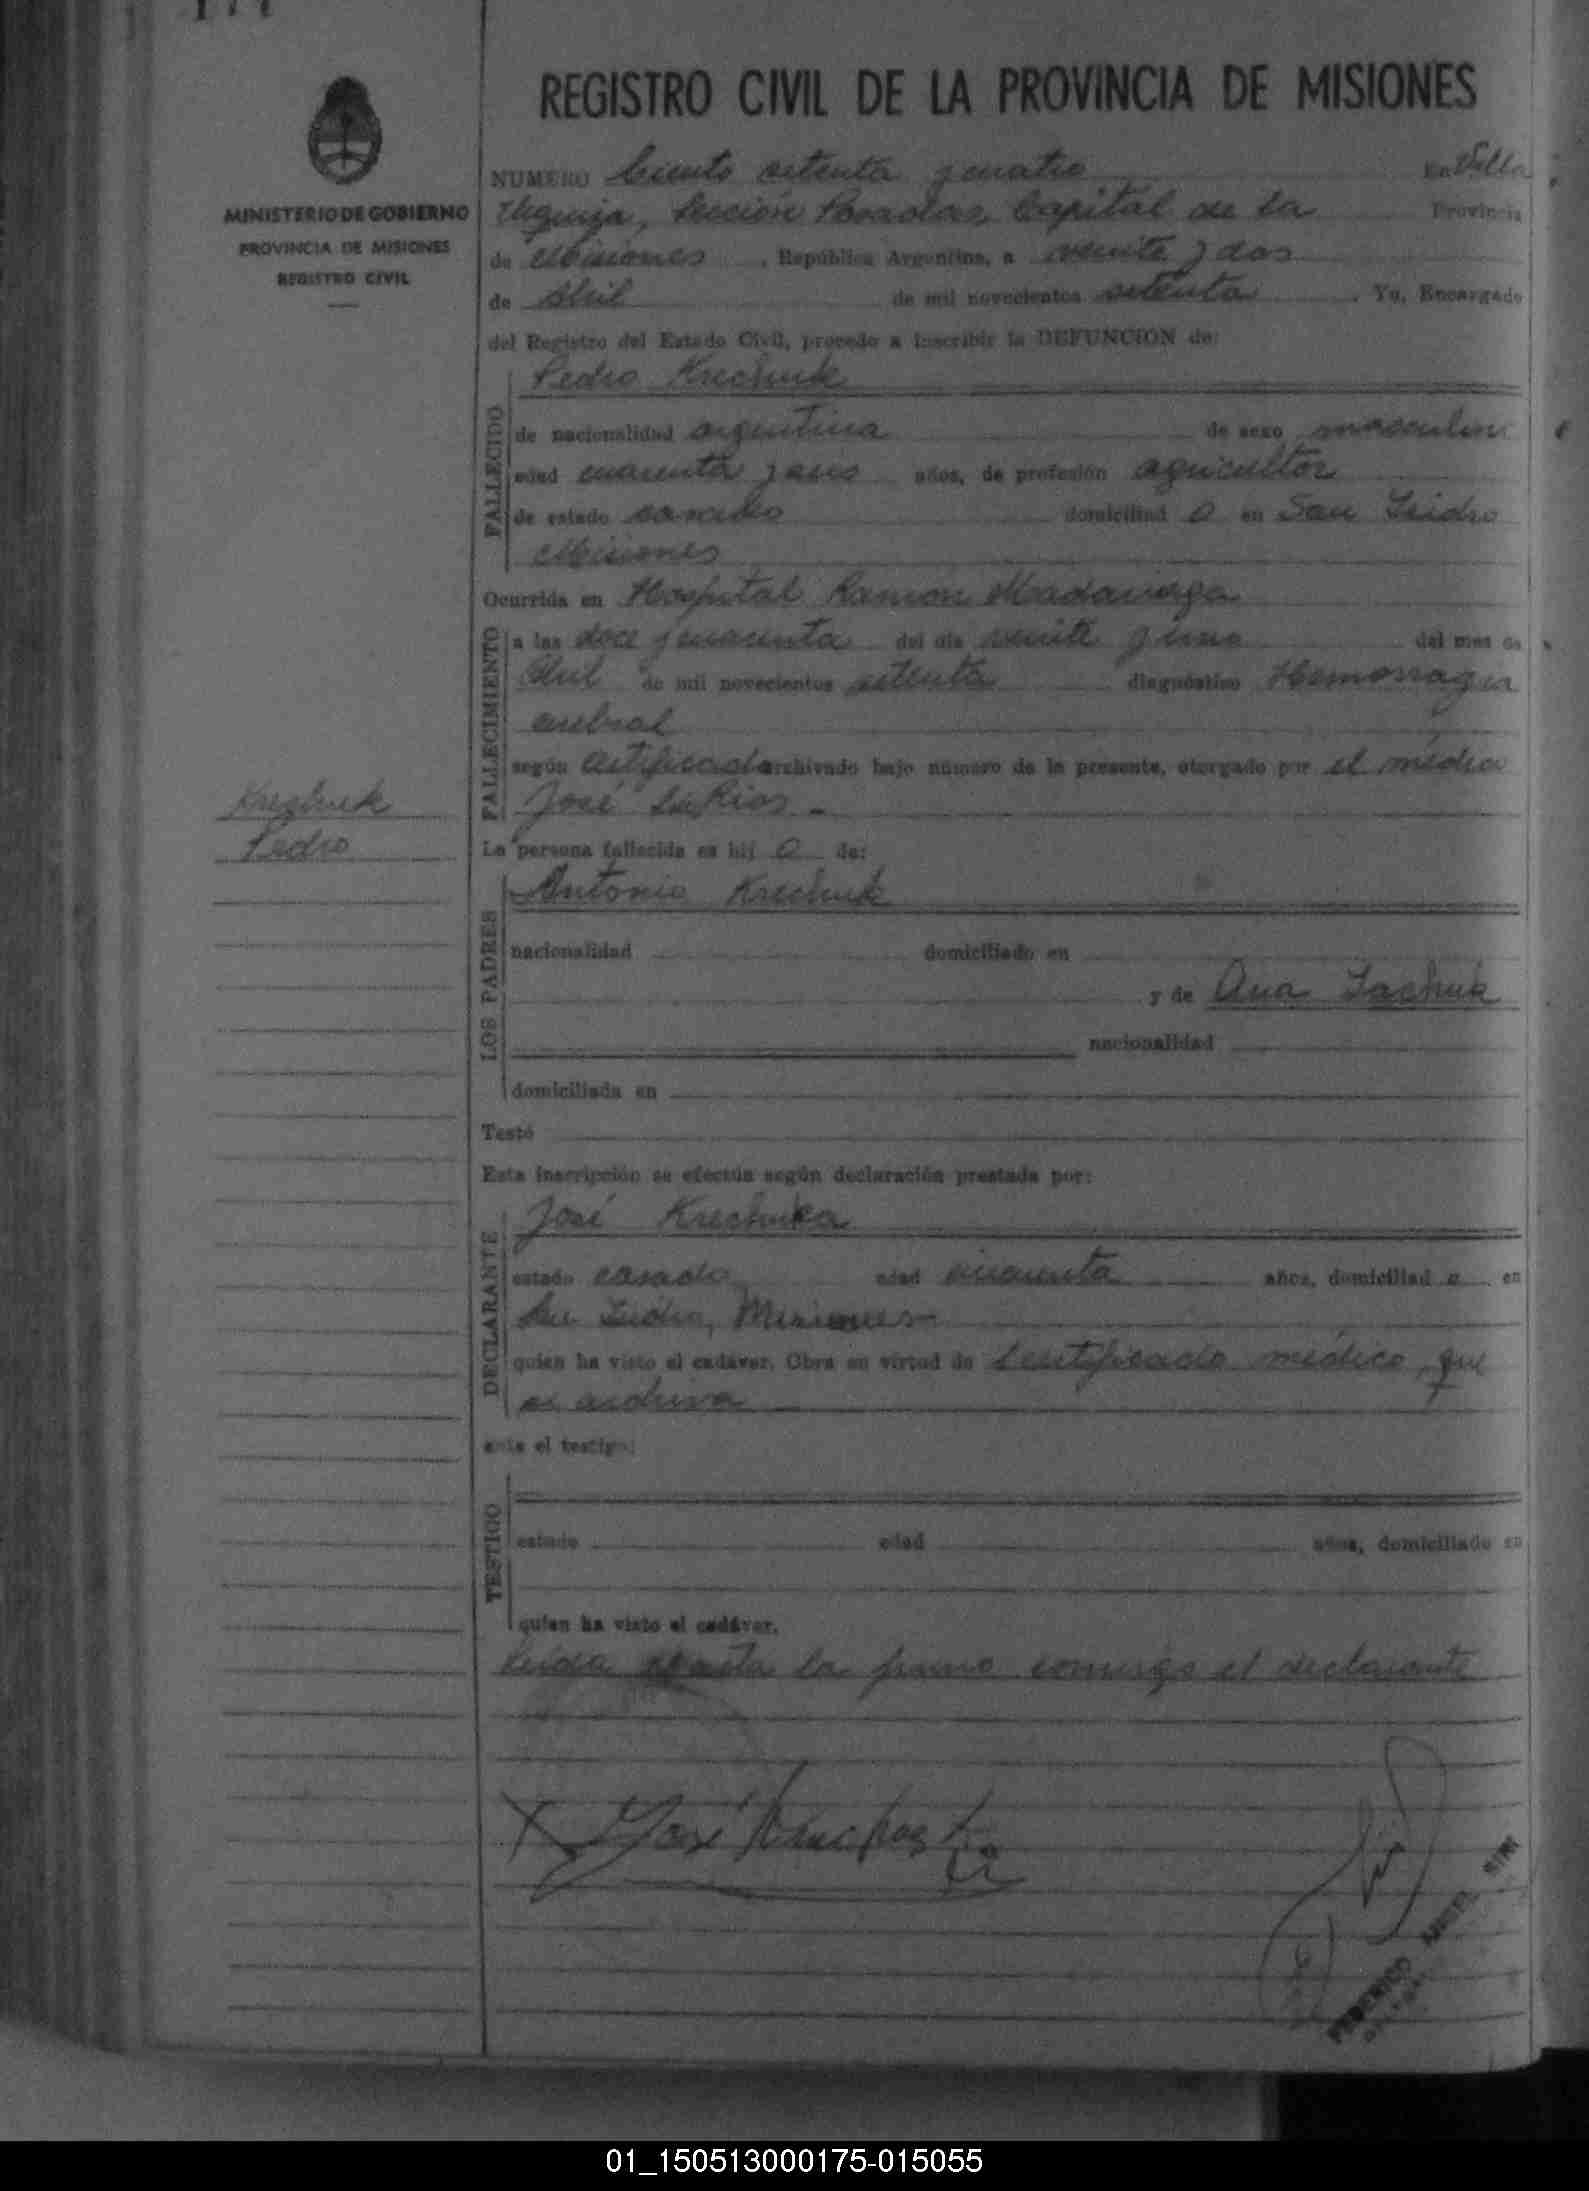 174
REGISTRO CIVIL DE LA PROVINCIA DE MISIONES
MINISTERIO DE GOBIERNO
PROVINCIA DE MISIONES
REGISTRO CIVIL
NUMERO Ciento setenta y cuatro En Villa
Urquiza, Sección Posadas, Capital de la Provincia
de Misiones, República Argentina, a veinte y dos
de Abril de mil novecientos setenta. Yo, Encargado
del Registro del Estado Civil, procedo a inscribir la DEFUNCION de:
Pedro Krechuk
FALLECIDO
de nacionalidad argentina de sexo masculino
edad cuarenta y años, de profesión agricultor
de estado domiciliad o en San Isidro
Misiones
Ocurrida en Hospital Ramón Madariaga
FALLECIMIENTO
a las doce y cuarenta del día veinte y uno del mes de
Abril de mil novecientos setenta diagnóstico Hemorragia
cerebral
según certificado archivado bajo número de la presente, otorgado por el médico
José
Krechuk
Pedro
La persona fallecida es hij o de:
LOS PADRES
Antonio Krechuk
nacionalidad domiciliado en
y de Ana
nacionalidad
domiciliada en
Testó
Esta inscripción se efectúa según declaración prestada por:
DECLARANTE
José
estado casado edad años, domiciliad o en
San Isidro, Misiones
quien ha visto el cadáver. Obra en virtud de certificado médico que
se archiva
ante el testigo:
TESTIGO
estado edad años, domiciliado en
quien ha visto el cadáver.
Leída acta la firmó conmigo el declarante
José
FEDERICO ANGEL
01_150513000175-015055